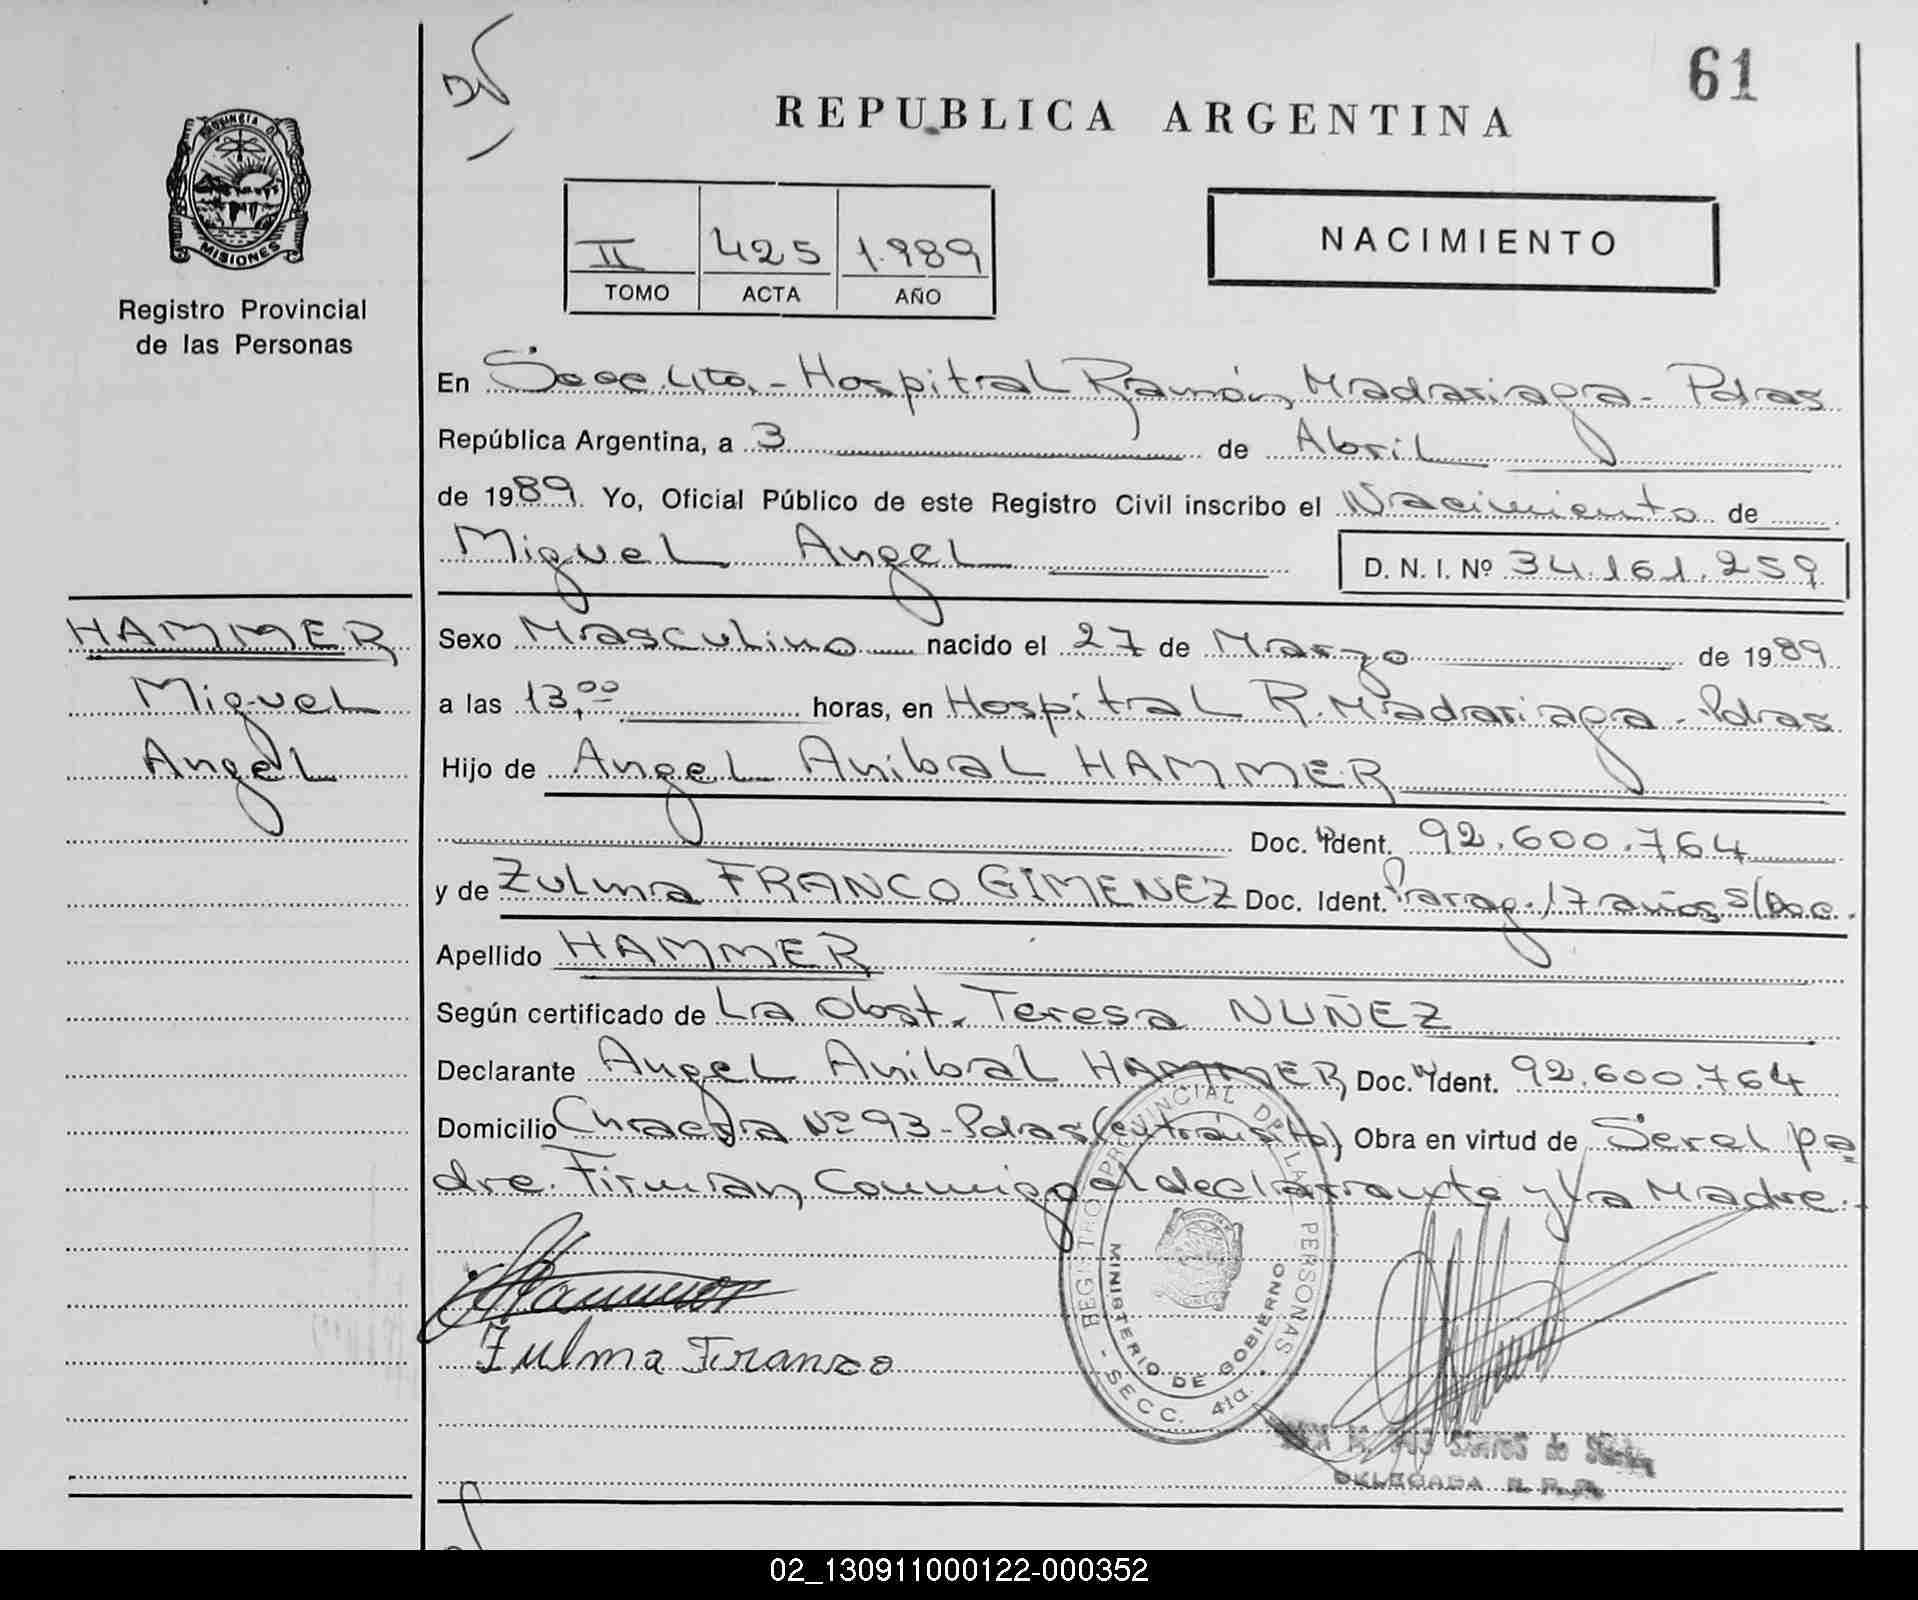 61
REPUBLICA ARGENTINA
PROVINCIA DE
MISIONES
Registro Provincial
de las Personas
II 425 1.989
TOMO ACTA AÑO
NACIMIENTO
En Secc. 41ta.- Hospital Ramón Madariaga - Pdas
República Argentina, a 3 de Abril
de 1989. Yo, Oficial Público de este Registro Civil inscribo el Nacimiento de
Miguel Angel D. N. I. Nº 34.161.259
HAMMER
Miguel
Angel
Sexo Masculino nacido el 27 de Marzo de 1989
a las 13,00 horas, en Hospital R. Madariaga - Pdas
Hijo de Angel Anibal HAMMER
Doc. Ident. 92.600.764
y de Zulma FRANCO GIMENEZ Doc. Ident. Parag. 17 años S/Doc.
Apellido HAMMER
Según certificado de La Obst. Teresa NUÑEZ
Declarante Angel Anibal HAMMER Doc. Ident. 92.600.764
Domicilio Chacra Nº 93 - Pdas (en tránsito) Obra en virtud de Ser el pa-
dre. Firman Conmigo el declarante y la Madre.-
Hammer
Zulma Franco
REGISTRO PROVINCIAL DE LAS PERSONAS
MINISTERIO DE GOBIERNO
- SECC. 41a. -
DELEGADA R. P. P.
02_130911000122-000352